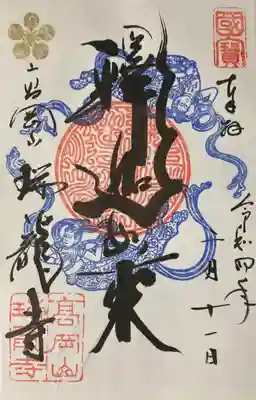 國寶
奉拝
令和四年
十一月十一日
釋迦如来
高岡山
瑞龍寺
高岡山
瑞龍寺